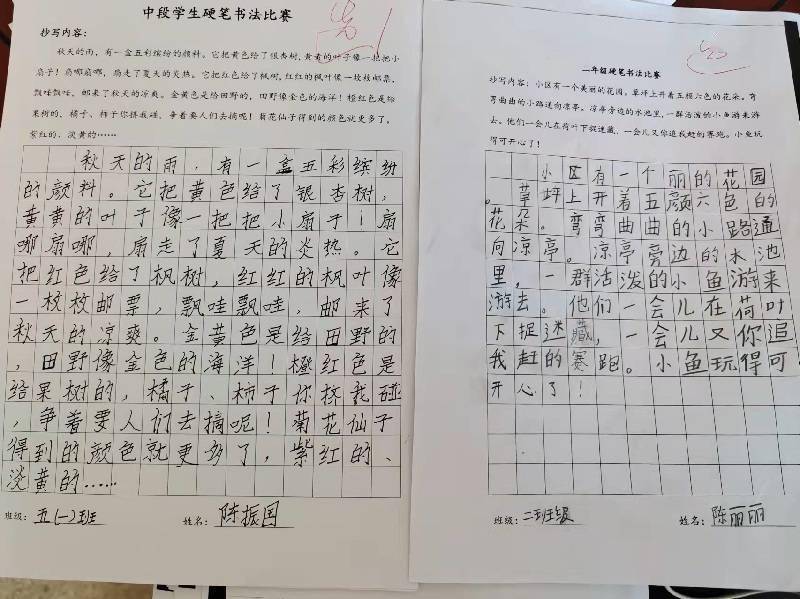 中段学生硬笔书法比赛
抄写内容：
秋天的雨，有一盒五彩缤纷的颜料。它把黄色给了银杏树，黄黄的叶子像一把把小
扇子！扇哪扇哪，扇走了夏天的炎热。它把红色给了枫树，红红的枫叶像一枚枚邮票，
飘哇飘哇，邮来了秋天的凉爽。金黄色是给田野的，田野像金色的海洋！橙红色是给
果树的，橘子、柿子你挤我碰，争着要人们去摘呢！菊花仙子得到的颜色就更多了，
紫红的、淡黄的……
秋天的雨，有一盒五彩缤纷
的颜料。它把黄色给了银杏树，
黄黄的叶子像一把把小扇子！扇
哪扇哪，扇走了夏天的炎热。它
把红色给了枫树，红红的枫叶像
一枚枚邮票，飘哇飘哇，邮来了
秋天的凉爽。金黄色是给田野的
，田野像金色的海洋！橙红色是
给果树的，橘子、柿子你挤我碰
，争着要人们去摘呢！菊花仙子
得到的颜色就更多了，紫红的、
淡黄的……
班级：五(一)班
姓名：陈振国
二年级硬笔书法比赛
抄写内容：小区有一个美丽的花园。草坪上开着五颜六色的花朵。弯
弯曲曲的小路通向凉亭。凉亭旁边的水池里，一群活泼的小鱼游来游
去。他们一会儿在荷叶下捉迷藏，一会儿又你追我赶的赛跑。小鱼玩
得可开心了！
小区有一个丽的花园
。草坪上开着五颜六色的
花朵。弯弯曲曲的小路通
向凉亭。凉亭旁边的水池
里，一群活泼的小鱼游来
游去。他们一会儿在荷叶
下捉迷藏，一会儿又你追
我赶的赛跑。小鱼玩得可
开心了！
班级：二班级
姓名：陈丽丽